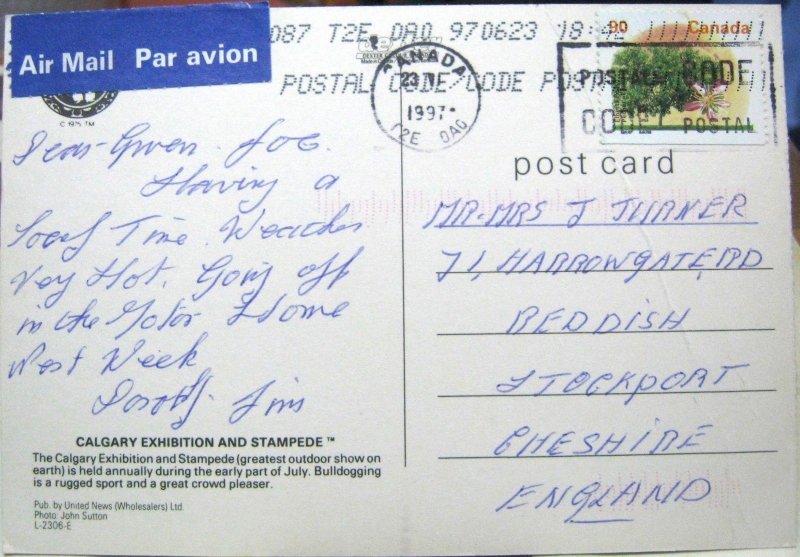 Air Mail Par avion
087 T2E 0A0 970623 18:4
POSTAL CODE/CODE POSTAL
© 1975 TM
CANADA
23 VI
1997
T2E 0A0
90 Canada
POSTAL CODE
CODE POSTAL
post card
Dear Gwen. Joe.
Having a
Lovely Time. Weather
Very Hot. Going off
in the Motor Home
Next Week
Dorothy. Jim
MR. MRS J TURNER
71, HARROWGATE, RD
REDDISH
STOCKPORT
CHESHIRE
ENGLAND
CALGARY EXHIBITION AND STAMPEDE ™
The Calgary Exhibition and Stampede (greatest outdoor show on
earth) is held annually during the early part of July. Bulldogging
is a rugged sport and a great crowd pleaser.
Pub. by United News (Wholesalers) Ltd.
Photo: John Sutton
L-2306-E